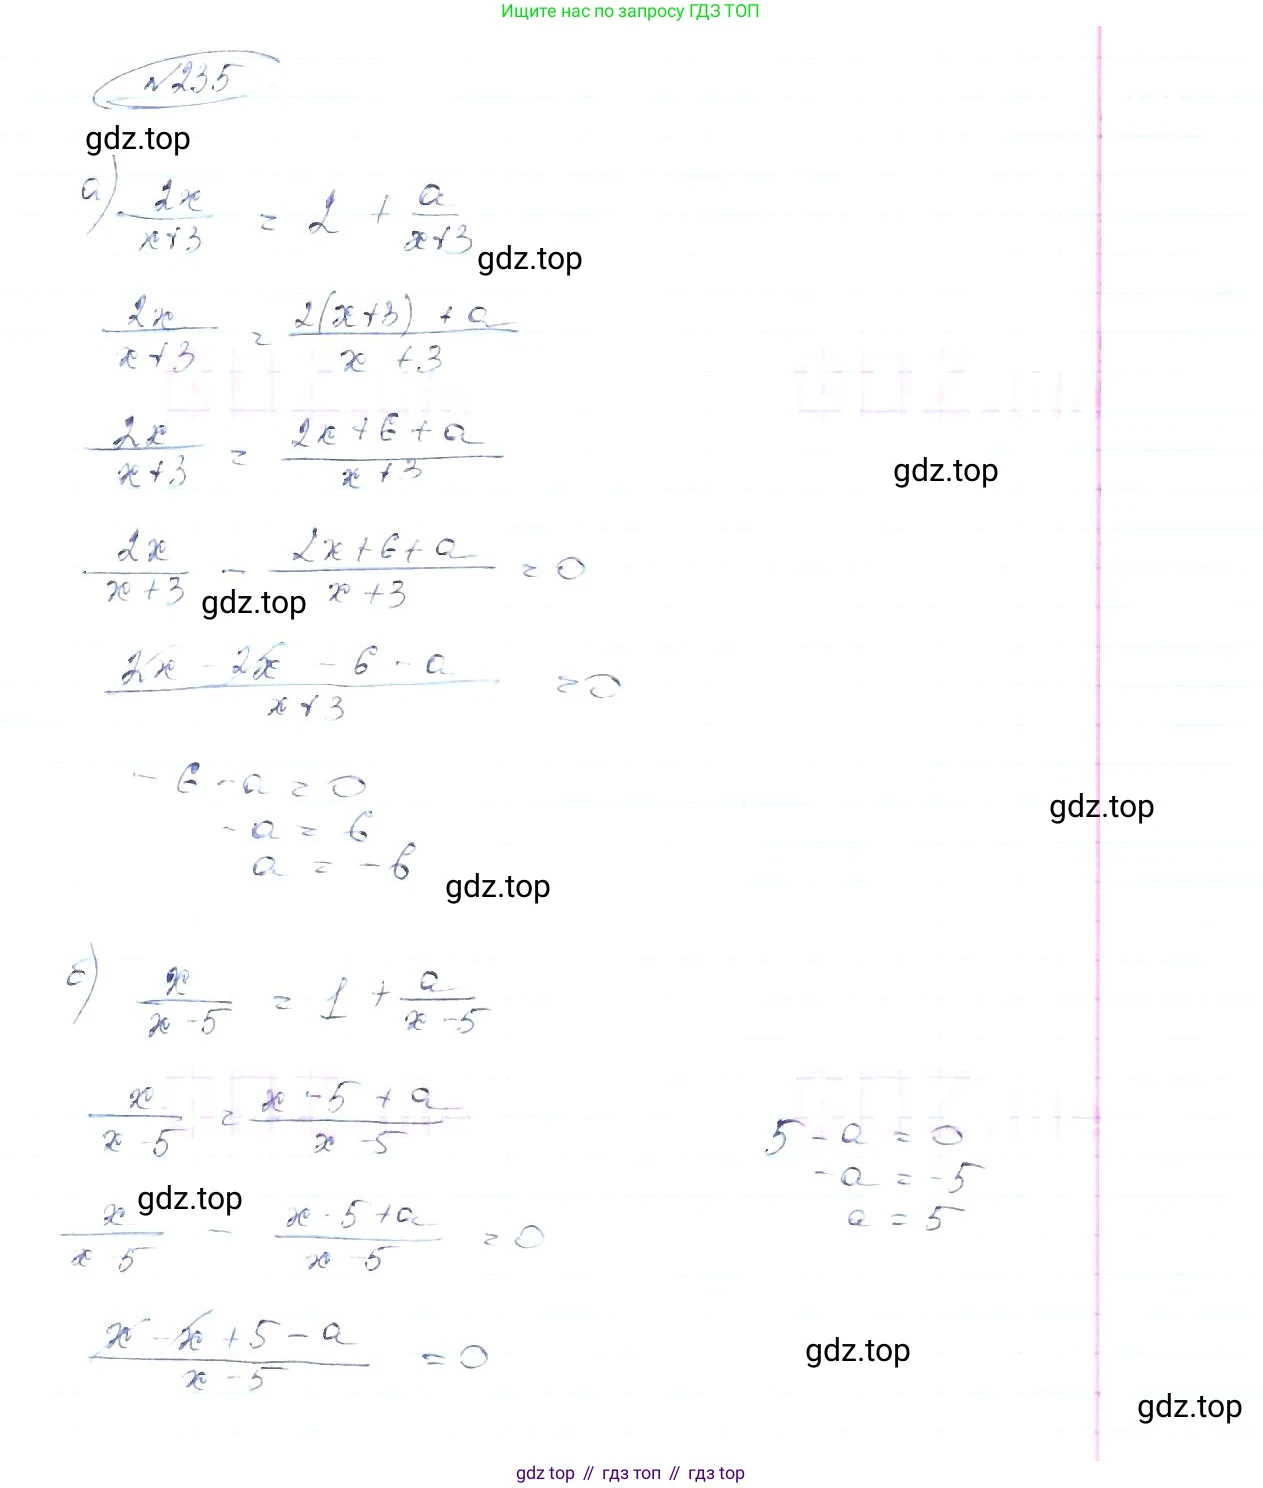 Ищите нас по запросу ГДЗ ТОП
№235
gdz.top
а) 2x/(x+3) = 2 + a/(x+3)
gdz.top
2x/(x+3) = (2(x+3) + a)/(x+3)
2x/(x+3) = (2x+6+a)/(x+3)
gdz.top
2x/(x+3) - (2x+6+a)/(x+3) = 0
gdz.top
(2x - 2x - 6 - a)/(x+3) = 0
- 6 - a = 0
gdz.top
- a = 6
a = - 6
gdz.top
б) x/(x-5) = 1 + a/(x-5)
x/(x-5) = (x-5+a)/(x-5)
5 - a = 0
- a = -5
a = 5
gdz.top
x/(x 5) - (x-5+a)/(x-5) = 0
(x - x + 5 - a)/(x-5) = 0
gdz.top
gdz.top
gdz top // гдз топ // gdz top